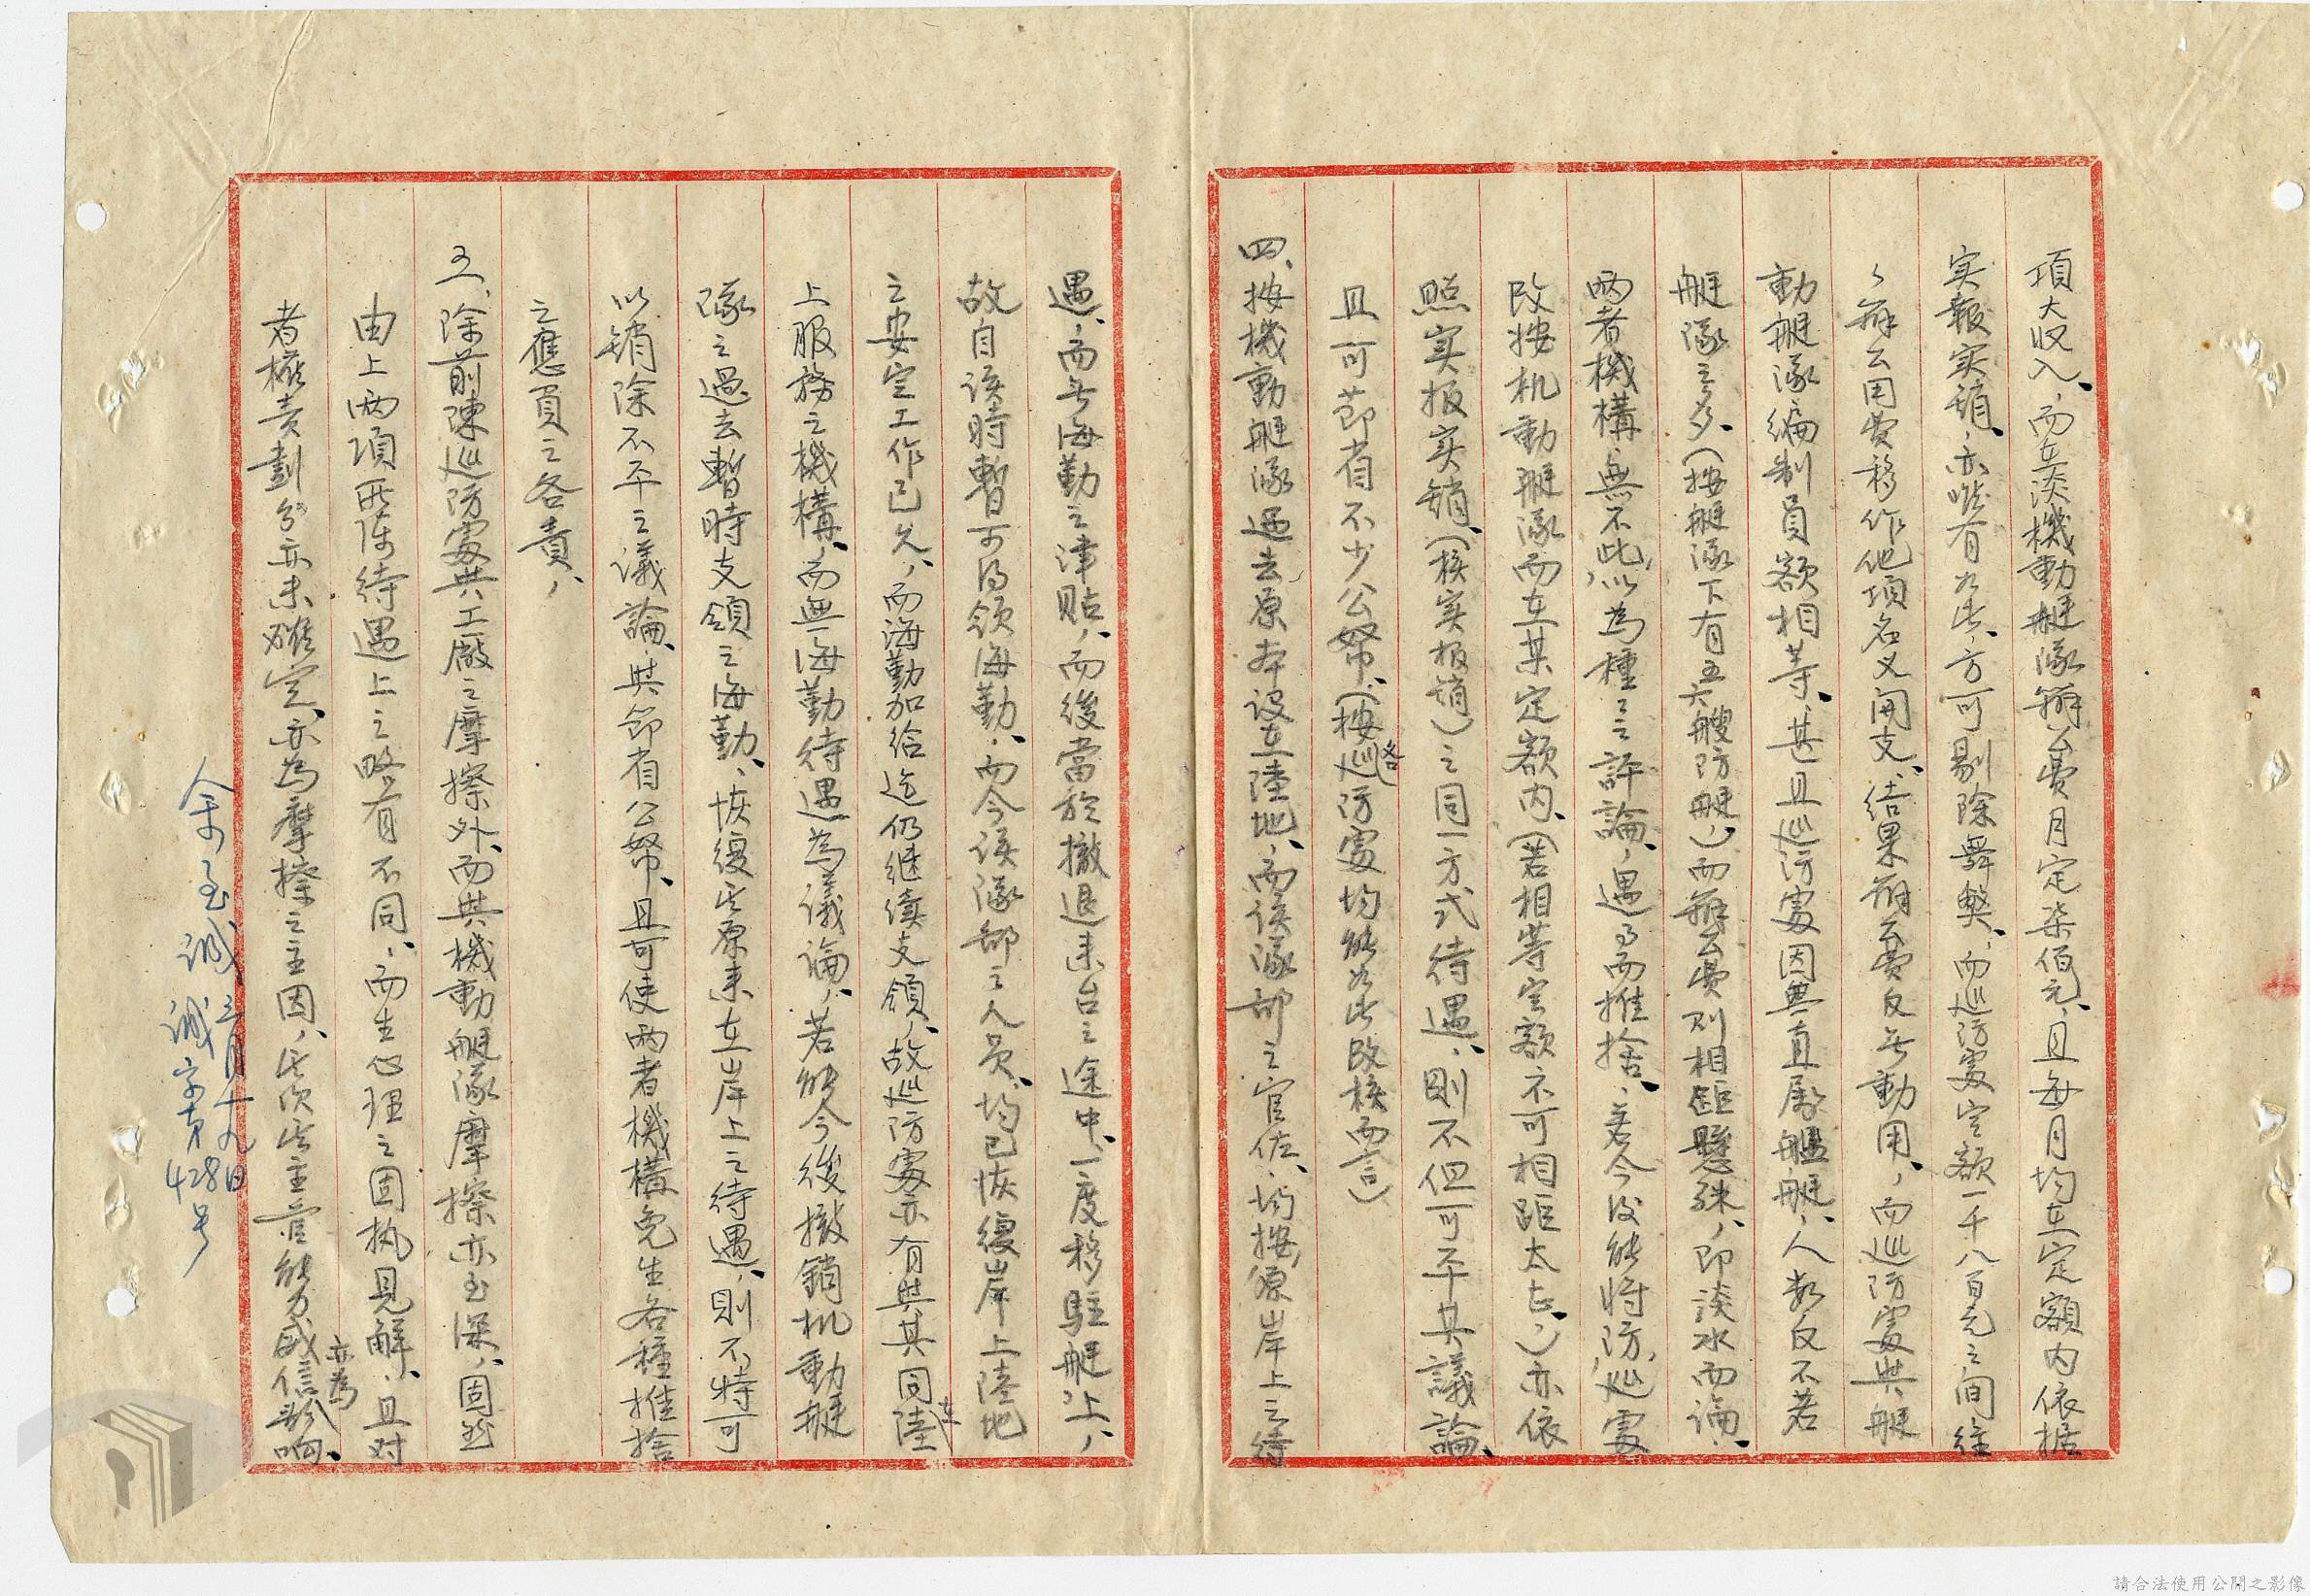 項大收入、而在淡機動艇隊辦公費月定柒佰元、且每月均在定額內依据
实報实銷、亦唯有如此、方可剔除舞弊、而巡防處定額一千八百元之间往
々辦公用費移作他項名义開支、结果辦公費反無動用、而巡防處與艇
動艇隊編制員額相等、甚且巡防處因無直屬艦艇、人数反不若
艇隊之多、(按艇隊下有五六艘防艇、)而辦公費則相距懸殊、即淡水而論、
兩者機構、無不此、以為種々之評論、遇事而推捨、若今後能将防巡處
改按机動艇隊而在某定额内、(若相等定額不可相距太大、)亦依
照实报实销、(核实报銷)之同一方式待遇、則不但可平其議論、
且可節省不少公帑、(按各巡防處均能如此改核而言)
四、按機動艇隊過去、原本設在陸地、而该隊部之官佐、均按、原岸上之待
遇、而無海勤之津贴、而後當於撤退来台之途中、一度移駐艇上、
故自该時暫可得领海勤、而今该隊部之人员、均已恢復岸上陸地
之安定工作已久、而海勤加给迄仍继续支領、故巡防處亦有與其同在陸
上服務之機構、而無海勤待遇為議論、若能今後撤銷机動艇
隊之過去暫時支領之海勤、恢復其原来在岸上之待遇、則不特可
以销除不平之議論、與節省公帑、且可使兩者機構免生各種推捨
之應負之咎責、
五、除前陳巡防處與工廠之摩擦外、而與機動艇隊摩擦亦至深、固然
由上两項所陈待遇上之略有不同、而生心理之固执見解、且对
者權责劃分亦未確定、亦為摩擦之主因、其次其主管能力威信亦為影响、
余至誠 三月十九日
誠字第428号
請合法使用公開之影像